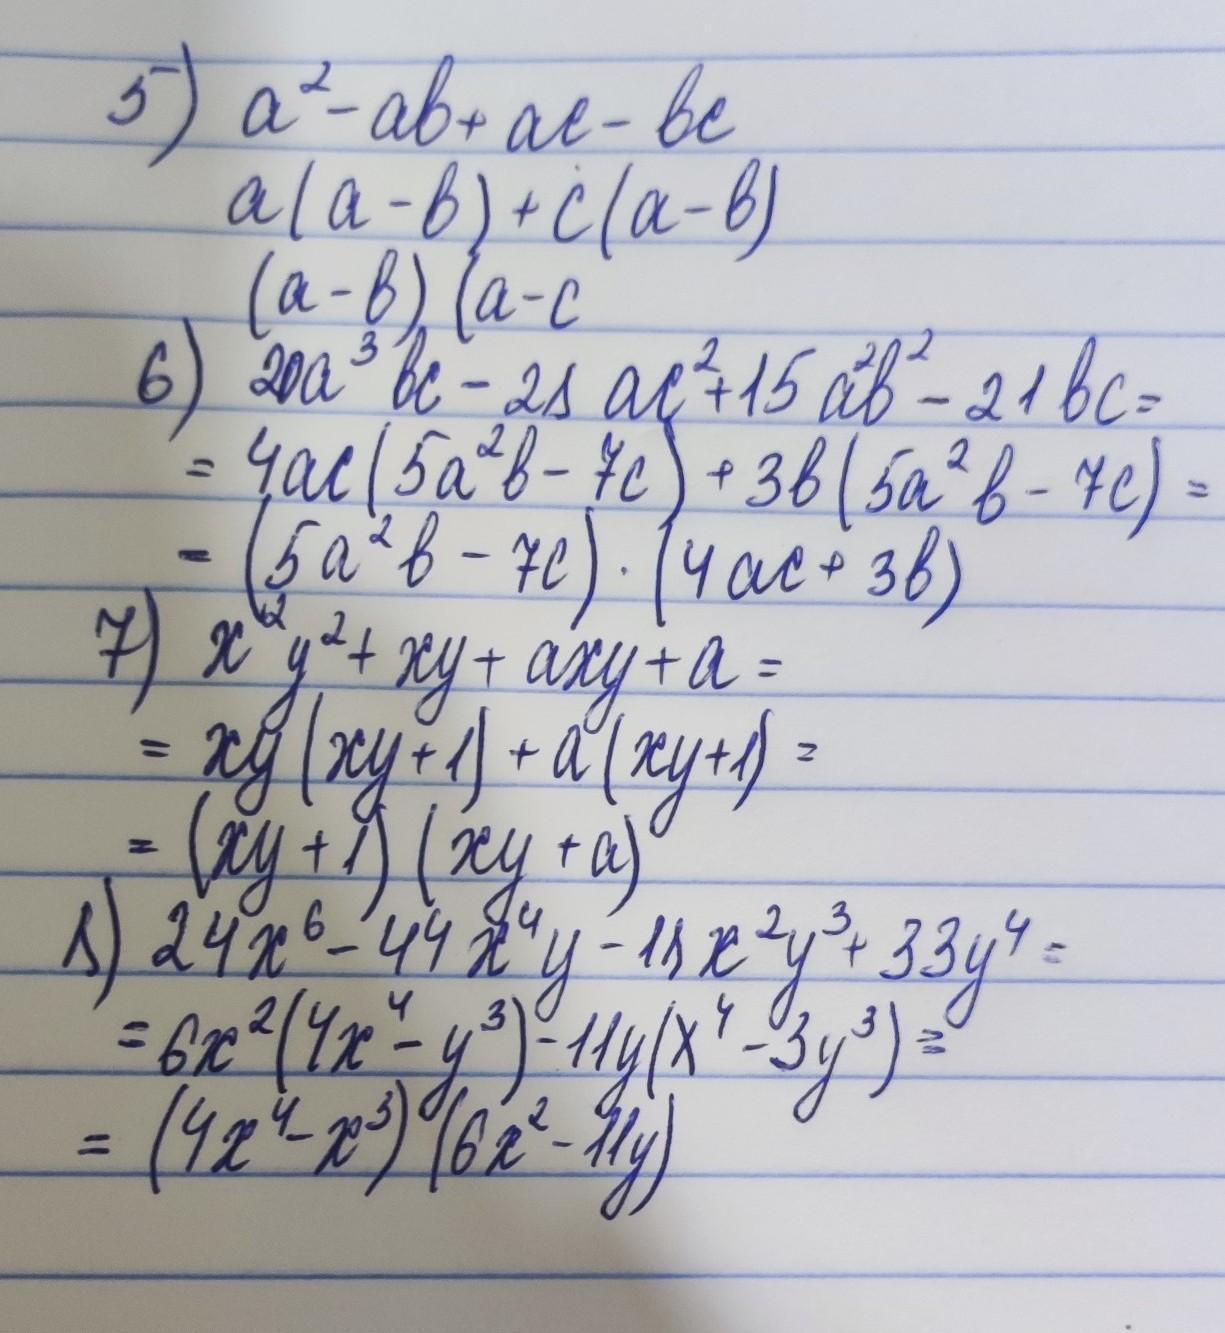 5) a² - ab + ac - bc
a(a - b) + c(a - b)
(a - b) (a - c
6) 20a³bc - 28ac² + 15a²b² - 21bc =
= 4ac(5a²b - 7c) + 3b(5a²b - 7c) =
= (5a²b - 7c) · (4ac + 3b)
7) x²y² + xy + axy + a =
= xy(xy + 1) + a(xy + 1) =
= (xy + 1) (xy + a)
8) 24x⁶ - 44x⁴y - 18x²y³ + 33y⁴ =
= 6x²(4x⁴ - y³) - 11y(x⁴ - 3y³) =
= (4x⁴ - x³) (6x² - 11y)